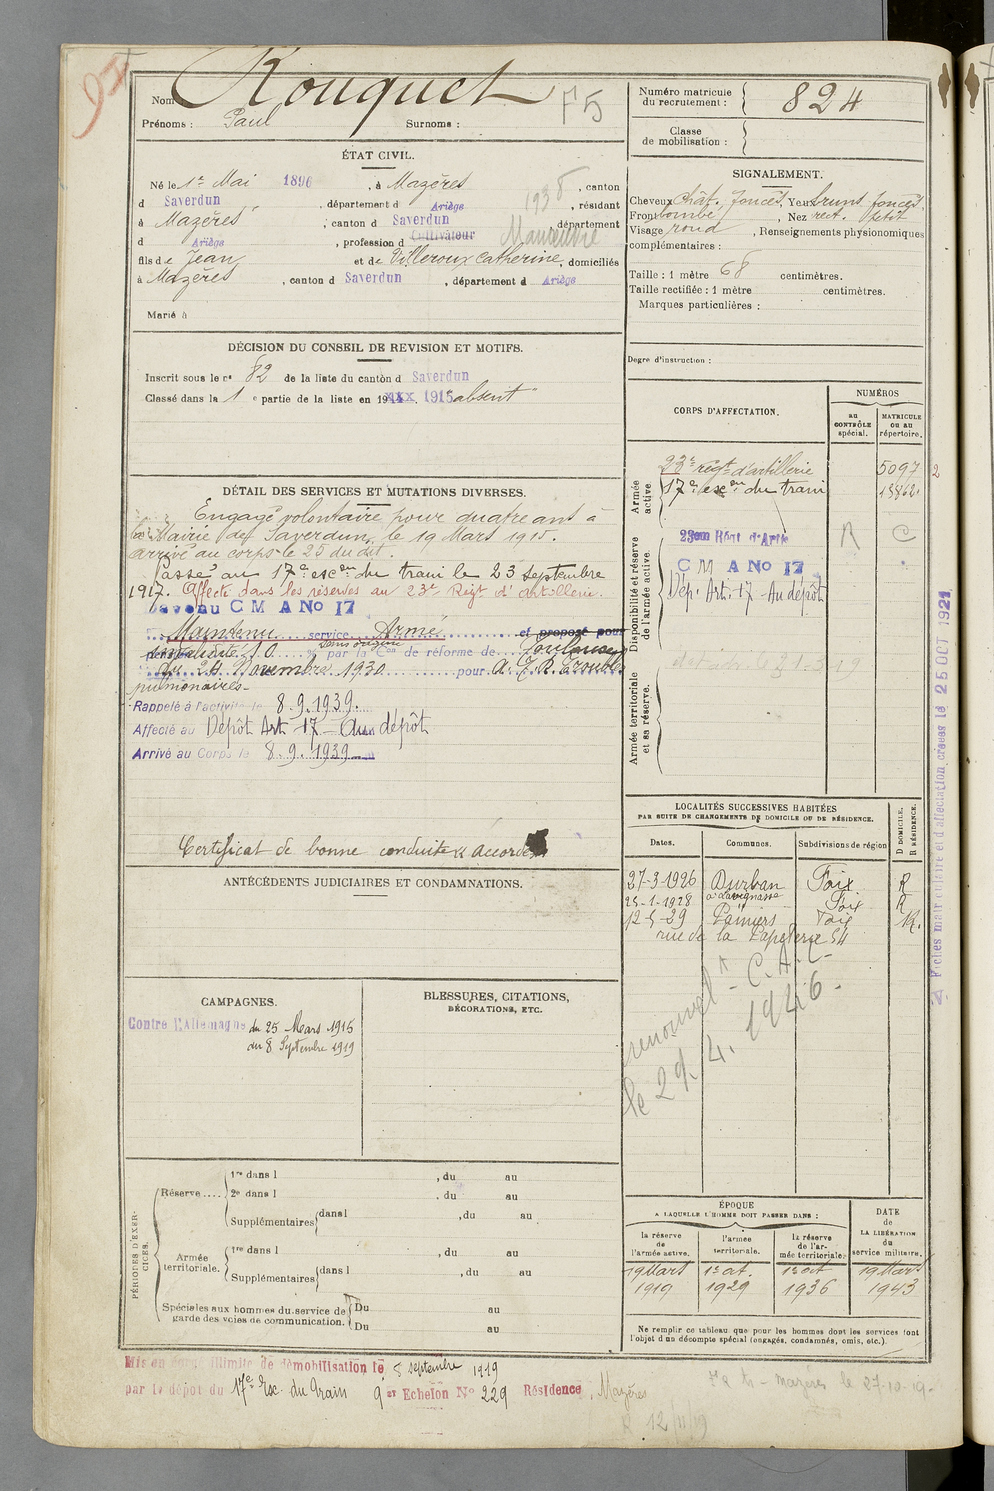 Nom Rouquet F5
Prénoms : Paul Surnoms :
Numéro matricule du recrutement : 824
Classe de mobilisation :
ÉTAT CIVIL.
Né le 1er Mai 1896, à Mazères, canton
d Saverdun, département d Ariège, résidant
à Mazères, canton d Saverdun département
d Ariège, profession d Cultivateur
fils de Jean et de Villeroux Catherine, domiciliés
à Mazères, canton d Saverdun, département d Ariège
Marié à
SIGNALEMENT.
Cheveux chât. foncés. Yeux bruns foncés
Front bombé, Nez rect. petit
Visage rond, Renseignements physionomiques
complémentaires :
Taille : 1 mètre 68 centimètres.
Taille rectifiée : 1 mètre centimètres.
Marques particulières :
Degré d'instruction :
DÉCISION DU CONSEIL DE REVISION ET MOTIFS.
Inscrit sous le n° 82 de la liste du canton d Saverdun
Classé dans la 1 e partie de la liste en 19xxx. 1915 "absent"
DÉTAIL DES SERVICES ET MUTATIONS DIVERSES.
Engagé volontaire pour quatre ans à
la Mairie de Saverdun, le 19 Mars 1915.
arrivé au corps le 25 du dit.
Passé au 17e escon du train le 23 septembre
1917. Affecté dans les réserves au 23e Régt d'artillerie.
CM A No 17
Maintenu service Armé et proposé pour
10 % sans origine par la Con de réforme de Toulouse
du 24 Novembre 1930 pour
pulmonaires.
Rappelé à l'activité le 8.9.1939.
Affecté au Dépôt Art. 17 - Au dépôt
Arrivé au Corps le 8.9.1939
Certificat de bonne conduite "accordé"
CORPS D'AFFECTATION.
NUMÉROS
au CONTRÔLE spécial.
MATRICULE ou au répertoire.
Armée active
23e régt d'artillerie 5097
17e escon du train 18862.
Disponibilité et réserve de l'armée active.
23em Régt d'Artie R C
CM A No 17
Dép. Art. 17 - Au dépôt
Armée territoriale et sa réserve.
LOCALITÉS SUCCESSIVES HABITÉES
PAR SUITE DE CHANGEMENTS DE DOMICILE OU DE RÉSIDENCE.
Dates. Communes. Subdivisions de région D DOMICILE. R RÉSIDENCE.
27-3-1926 Durban Foix R
25-1-1928 Foix R
12-5-29 Pamiers Foix R.
rue de la Papeterie 54
renouvel - C.A.C-
le 29.4.1946.
Fiches matriculaire et d'affectation créées le 25 OCT 1921
ANTÉCÉDENTS JUDICIAIRES ET CONDAMNATIONS.
CAMPAGNES.
Contre l'Allemagne du 25 Mars 1915
du 8 Septembre 1919
BLESSURES, CITATIONS,
DÉCORATIONS, ETC.
PÉRIODES D'EXERCICES.
Réserve....
1re dans l , du au
2e dans l , du au
Supplémentaires dans l , du au
Armée territoriale.
1re dans l , du au
Supplémentaires dans l , du au
Spéciales aux hommes du service de garde des voies de communication.
Du au
Du au
ÉPOQUE
A LAQUELLE L'HOMME DOIT PASSER DANS :
la réserve de l'armée active. l'armée territoriale. la réserve de l'armée territoriale. DATE DE LA LIBÉRATION du service militaire.
19 Mars 1919
1er oct. 1929
1er oct 1936
19 Mars 1943
Ne remplir ce tableau que pour les hommes dont les services font
l'objet d'un décompte spécial (engagés, condamnés, omis, etc.).
Mis en congé illimité de démobilisation le 8 septembre 1919
par le dépôt du 17e Esc. du Train 9 er Echelon No 229 Résidence, Mazères
Mazères le 27-10-19.
12/11/19